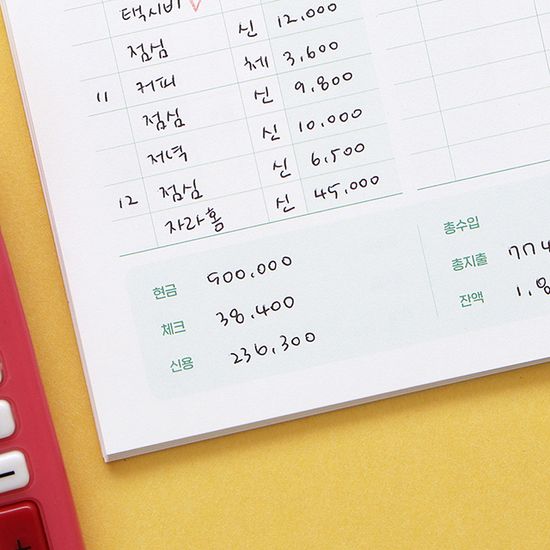 택시비
점심 신 12,000
11 커피 체 3,600
점심 신 9,800
저녁 신 10,000
12 점심 신 6,500
자라홈 신 45,000
현금 500,000
체크 38,400
신용 236,300
총수입
총지출 774
잔액 1,8